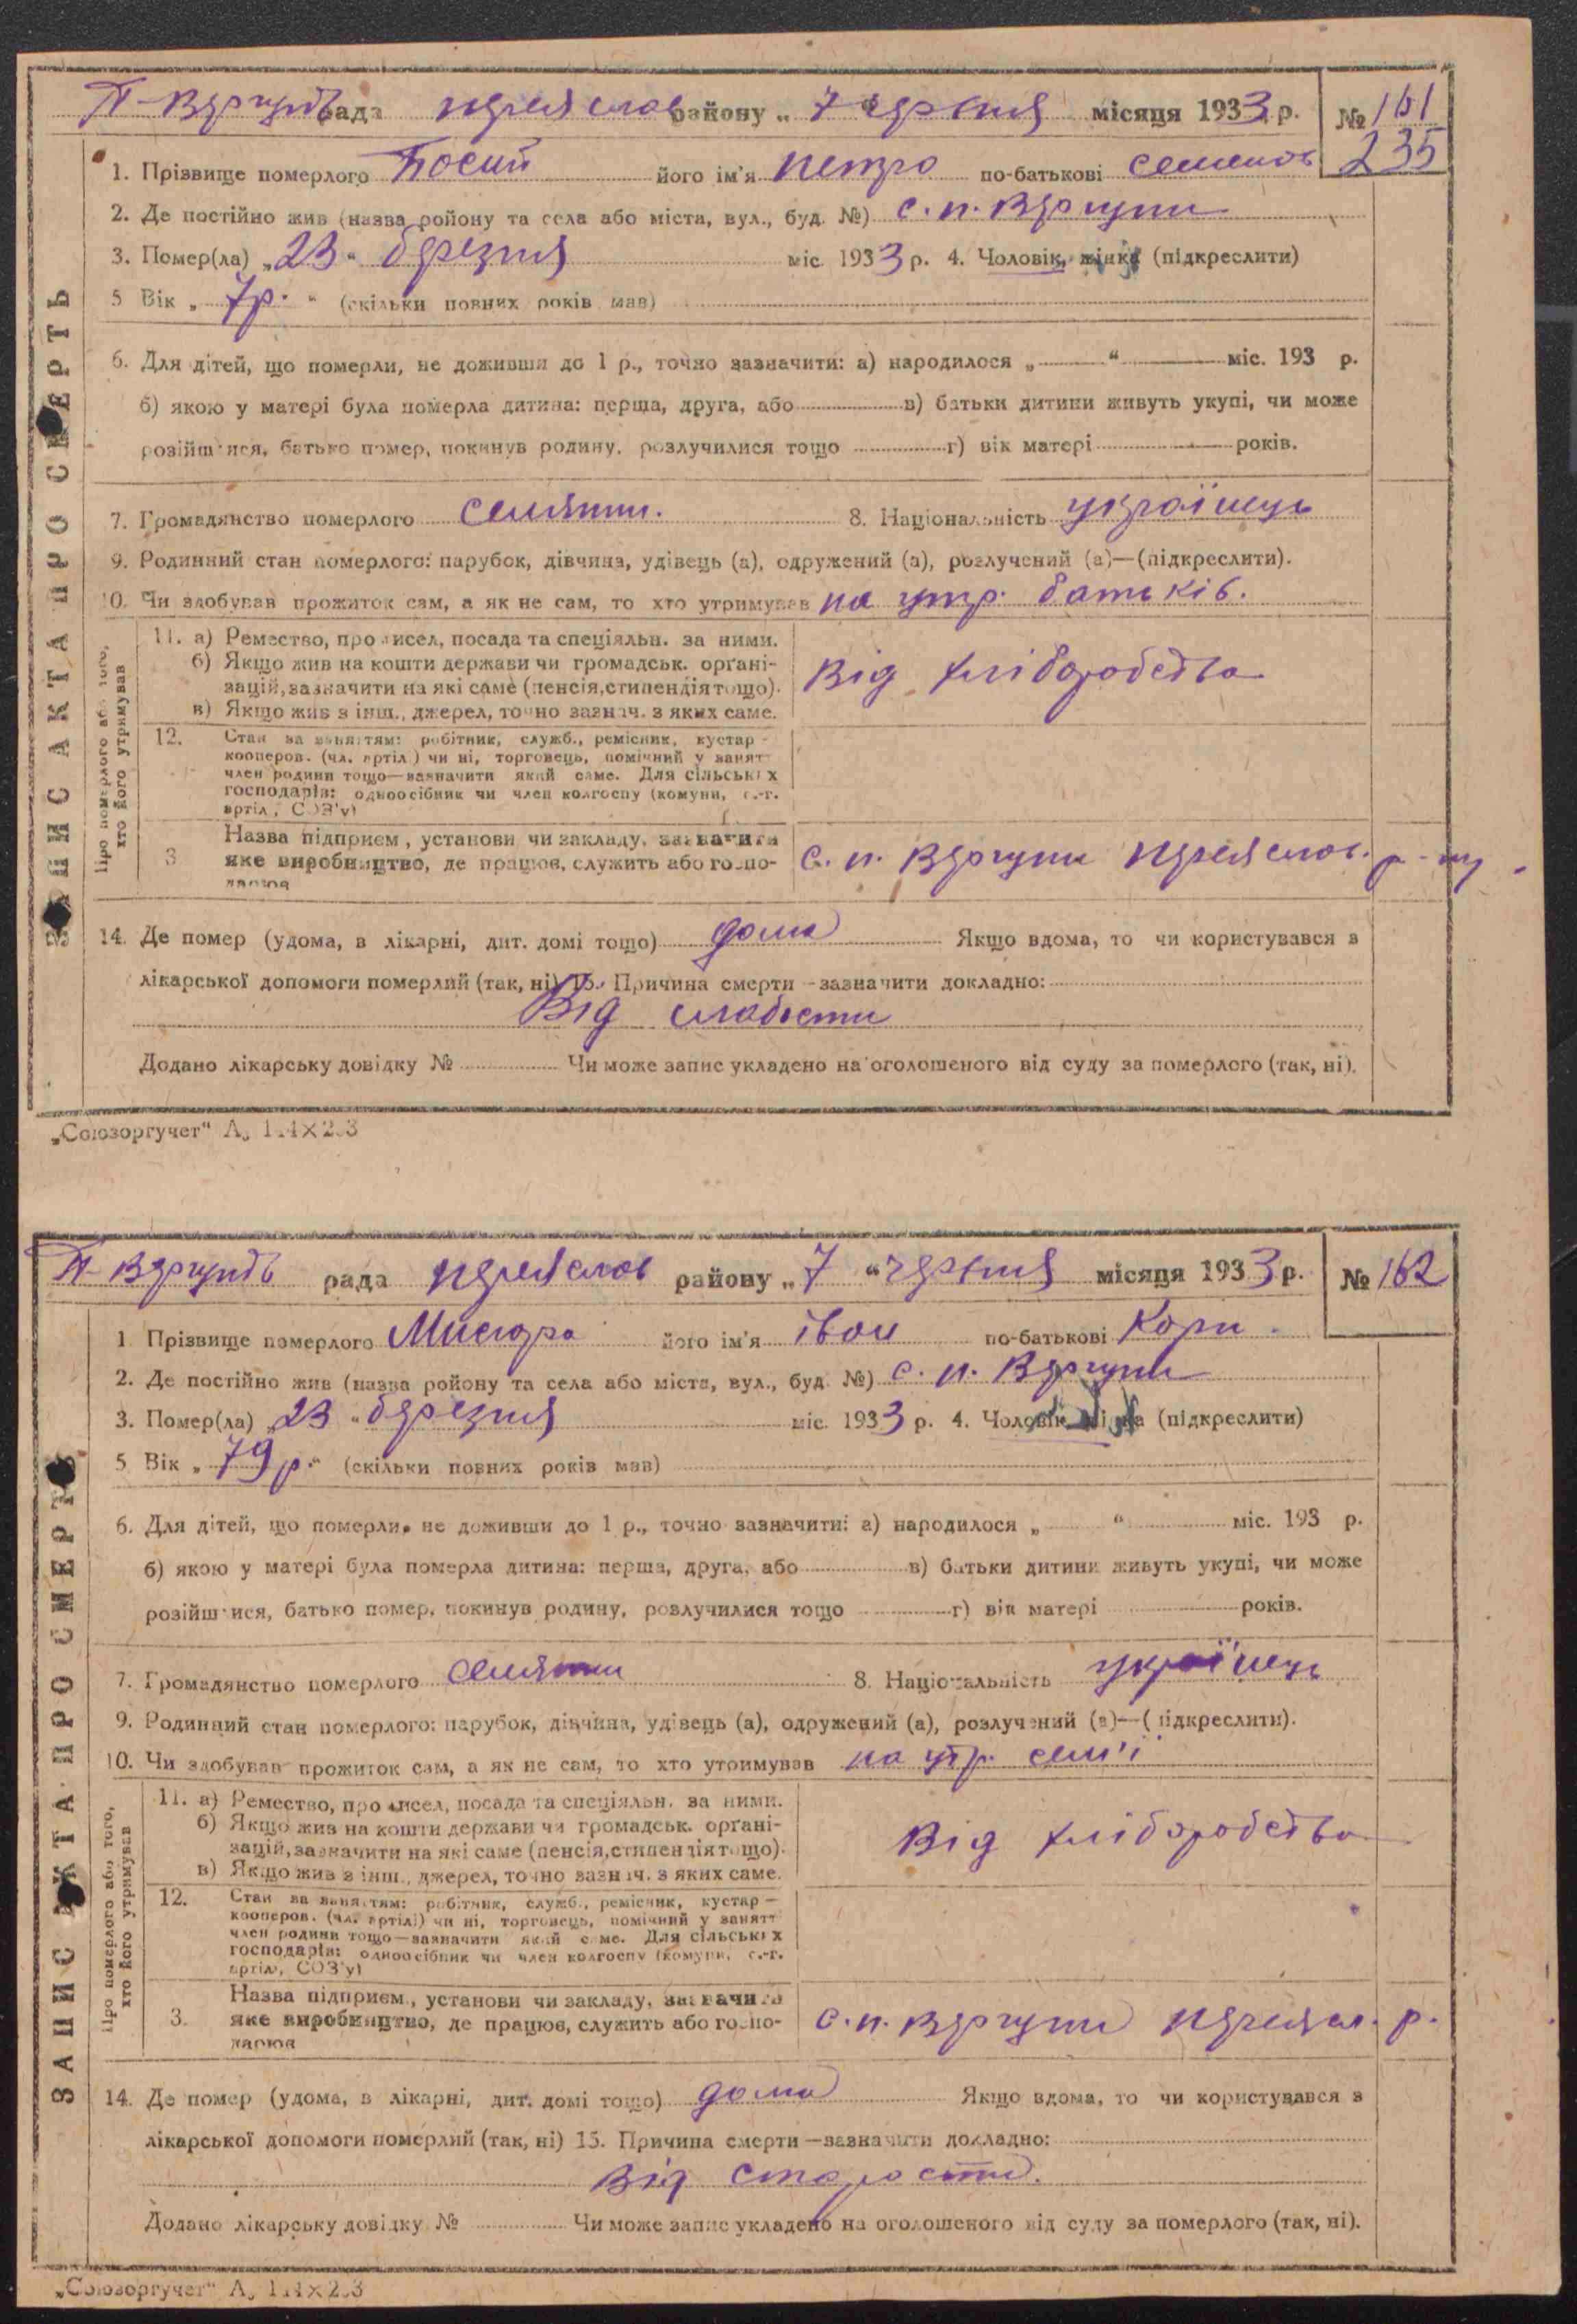 П-Вергунів рада переяслов району „ 7 “ червня місяця 1933 р. № 161
235
1. Прізвище померлого Босий його ім'я Петро по-батькові семенов
2. Де постійно жив (назва ройону та села або міста, вул., буд. №) с. п. Вергуни
3. Помер(ла) „ 23 “ березня міс. 1933 р. 4. Чоловік, жінка (підкреслити)
5 Вік „ 7р. “ (скільки повних років мав)
6. Для дітей, що померли, не доживши до 1 р., точно зазначити: а) народилося „ “ міс. 193 р.
б) якою у матері була померла дитина: перша, друга, або в) батьки дитини живуть укупі, чи може
розійшлися, батько помер, покинув родину, розлучилися тощо г) вік матері років.
7. Громадянство померлого селянин. 8. Національність українець
9. Родинний стан померлого: парубок, дівчина, удівець (а), одружений (а), розлучений (а)—(підкреслити).
10. Чи здобував прожиток сам, а як не сам, то хто утримував на утр. батьків.
Про померлого або того, хто його утримував
11. а) Ремество, промисел, посада та спеціяльн. за ними.
б) Якщо жив на кошти держави чи громадськ. орґані-
зацій, зазначити на які саме (пенсія, стипендія тощо).
в) Якщо жив з інш., джерел, точно зазнач. з яких саме.
Від хліборобства
12. Стан за заняттям: робітник, служб., ремісник, кустар —
кооперов. (чл. артіл.) чи ні, торговець, помічний у занят
член родини тощо—зазначити який саме. Для сільських
господарів: одноосібник чи член колгоспу (комуни, с.-г.
артіл, СОЗ'у)
3 Назва підприєм., установи чи закладу, зазначити
яке виробництво, де працюв, служить або госпо-
дарюв
с. п. Вергуни Переяслов. р-ну
14. Де помер (удома, в лікарні, дит. домі тощо) дома Якщо вдома, то чи користувався з
лікарської допомоги померлий (так, ні) 15. Причина смерти —зазначити докладно:
Від слабости
Додано лікарську довідку № Чи може запис укладено на оголошеного від суду за померлого (так, ні).
ЗАПИС АКТА ПРО СМЕРТЬ
„Союзоргучет“
П-Вергунів рада переяслов району „ 7 “ червня місяця 1933 р. № 162
1 Прізвище померлого Мисюра його ім'я іван по-батькові Корн.
2. Де постійно жив (назва ройону та села або міста, вул., буд. №) с. п. Вергуни
3. Помер(ла) „ 23 “ березня міс. 1933 р. 4. Чоловік, жінка (підкреслити)
5 Вік „ 79 р. “ (скільки повних років мав)
6. Для дітей, що померли, не доживши до 1 р., точно зазначити: а) народилося „ “ міс. 193 р.
б) якою у матері була померла дитина: перша, друга, або в) батьки дитини живуть укупі, чи може
розійшлися, батько помер, покинув родину, розлучилися тощо г) вік матері років.
7. Громадянство померлого селянин 8. Національність українець
9. Родинний стан померлого: парубок, дівчина, удівець (а), одружений (а), розлучений (а)—(підкреслити).
10. Чи здобував прожиток сам, а як не сам, то хто утримував на утр. сем'ї
Про померлого або того, хто його утримував
11. а) Ремество, промисел, посада та спеціяльн. за ними.
б) Якщо жив на кошти держави чи громадськ. орґані-
зацій, зазначити на які саме (пенсія, стипендія тощо).
в) Якщо жив з інш., джерел, точно зазнач. з яких саме.
Від хліборобства
12. Стан за заняттям: робітник, служб., ремісник, кустар —
кооперов. (чл. артілі) чи ні, торговець, помічний у занятт
член родини тощо—зазначити який саме. Для сільських
господарів: одноосібник чи член колгоспу (комуни, с.-г.
артіл, СОЗ'у)
3. Назва підприєм., установи чи закладу, зазначити
яке виробництво, де працюв, служить або госпо-
дарюв
с. п. Вергуни Переясл. р.
14. Де помер (удома, в лікарні, дит. домі тощо) дома Якщо вдома, то чи користувався з
лікарської допомоги померлий (так, ні) 15. Причина смерти —зазначити докладно:
Від старости.
Додано лікарську довідку № Чи може запис укладено на оголошеного від суду за померлого (так, ні).
ЗАПИС АКТА ПРО СМЕРТЬ
„Союзоргучет“